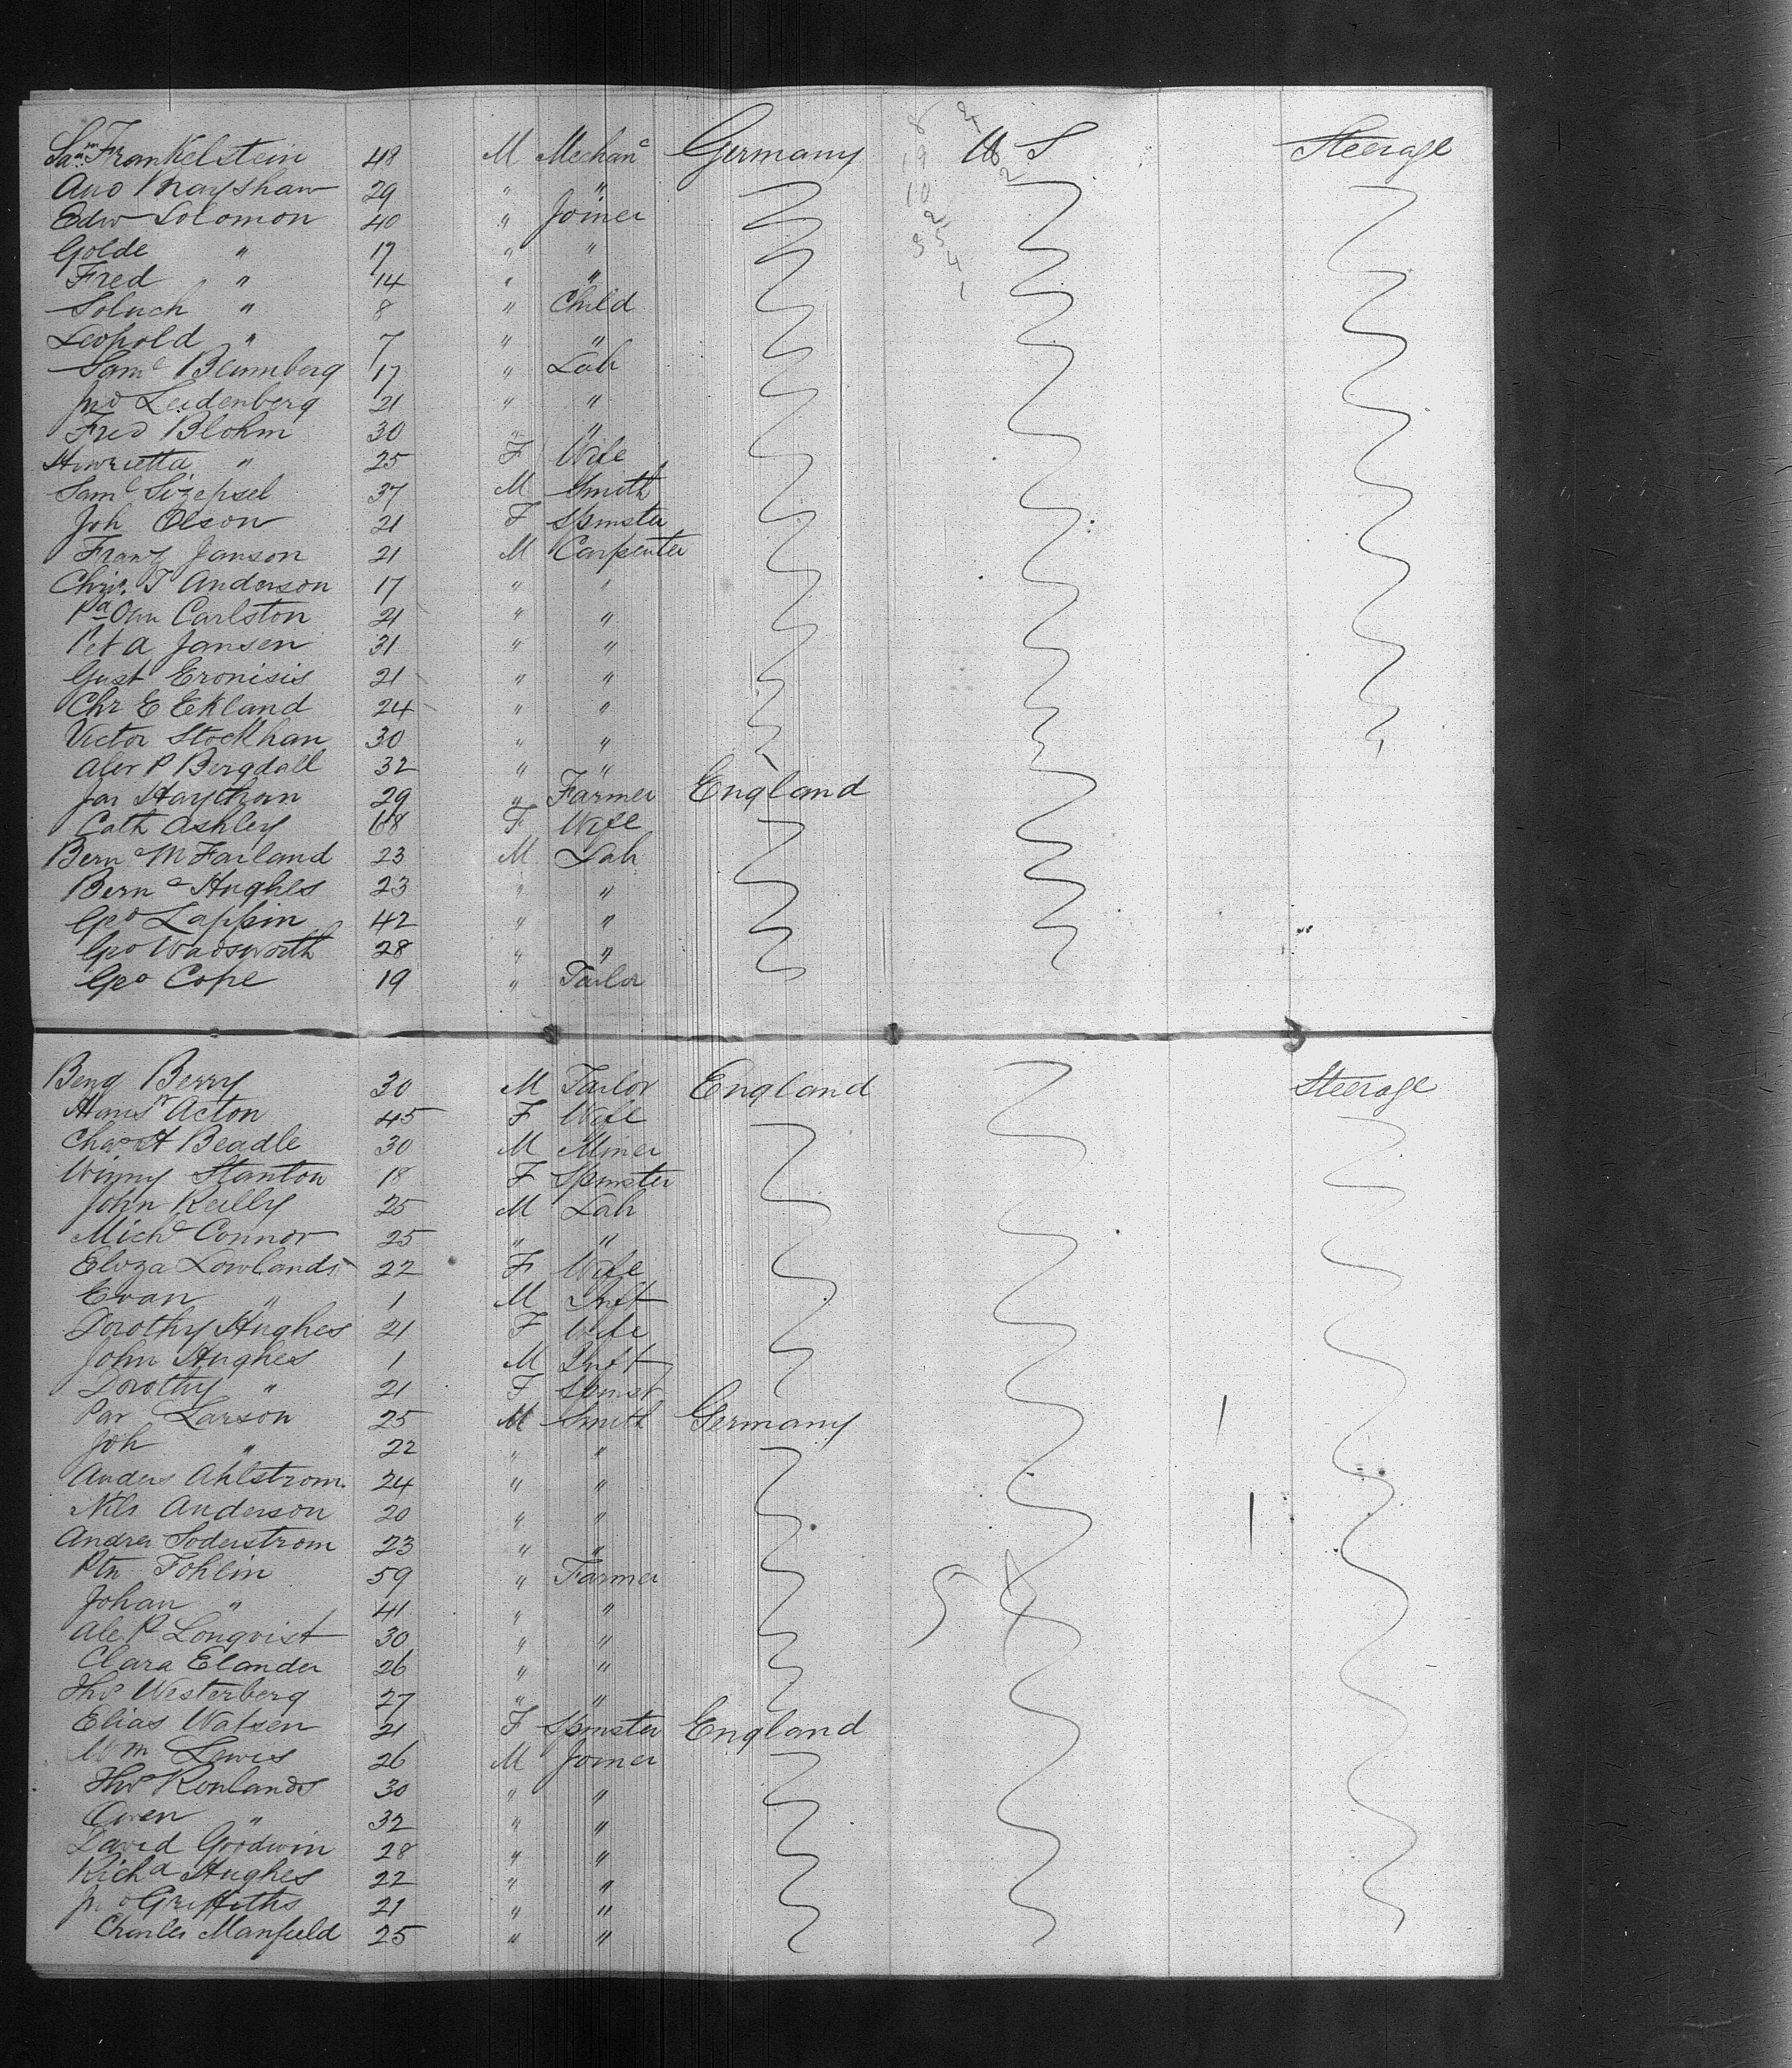 Sam Frankelstein 48 M Mechanc Germany U S Steerage
Aug Mayshaw 29 " "
Edw Solomon 40 " Joiner
Golde " 17 " "
Fred " 14 " "
Soluch " 8 " Child
Leopold " 7 " "
Saml Blumberg 17 " Lab
Jno Leidenberg 21 " "
Fred Blohm 30 " "
Henrietta " 25 F Wife
Saml Sizepsel 37 M Smith
Joh Olson 21 F Spinster
Franz Janson 21 M Carpenter
Chris. J Anderson 17 " "
Carlston 21 " "
Pet A Jansen 31 " "
Gust Eronisis 21 " "
Chr E Ekland 24 " "
Victor Stockhan 30 " "
Alex P Bergdall 32 " "
Jas Haythan 29 " Farmer England
Cath Ashley 68 F Wife
Bern McFarland 23 M Lab
Bernd Hughes 23 " "
Geo Lappin 42 " "
Geo Wadsworth 28 " "
Geo Cope 19 " Tailor
Benj Berry 30 M Tailor England Steerage
Acton 45 F Wife
Chas H Beadle 30 M Miner
Winny Stanton 18 F Spinster
John Keilly 25 M Lab
Michl Connor 25 " "
Eliza Lowlands 22 F Wife
Evan " 1 M Inft
Dorothy Hughes 21 F Wife
John Hughes 1 M Inft
Dorothy " 21 F Spinst
Par Larson 25 M Smith Germany
Joh " 22 " "
Anders Ahlstrom 24 " "
Nils Anderson 20 " "
Andrea Soderstrom 23 " "
Ptn Tohlin 59 " Farmer
Johan " 41 " "
Ale P Lonqvist 30 " "
Clara Elander 26 " "
Thos Westerberg 27 " "
Elias Watsen 21 F Spinster England
Wm Lewis 26 M Joiner
Thos Rowlands 30 " "
Owen " 32 " "
David Goodwin 28 " "
Richd Hughes 22 " "
Jno Griffiths 21 " "
Charles Manfield 25 " "